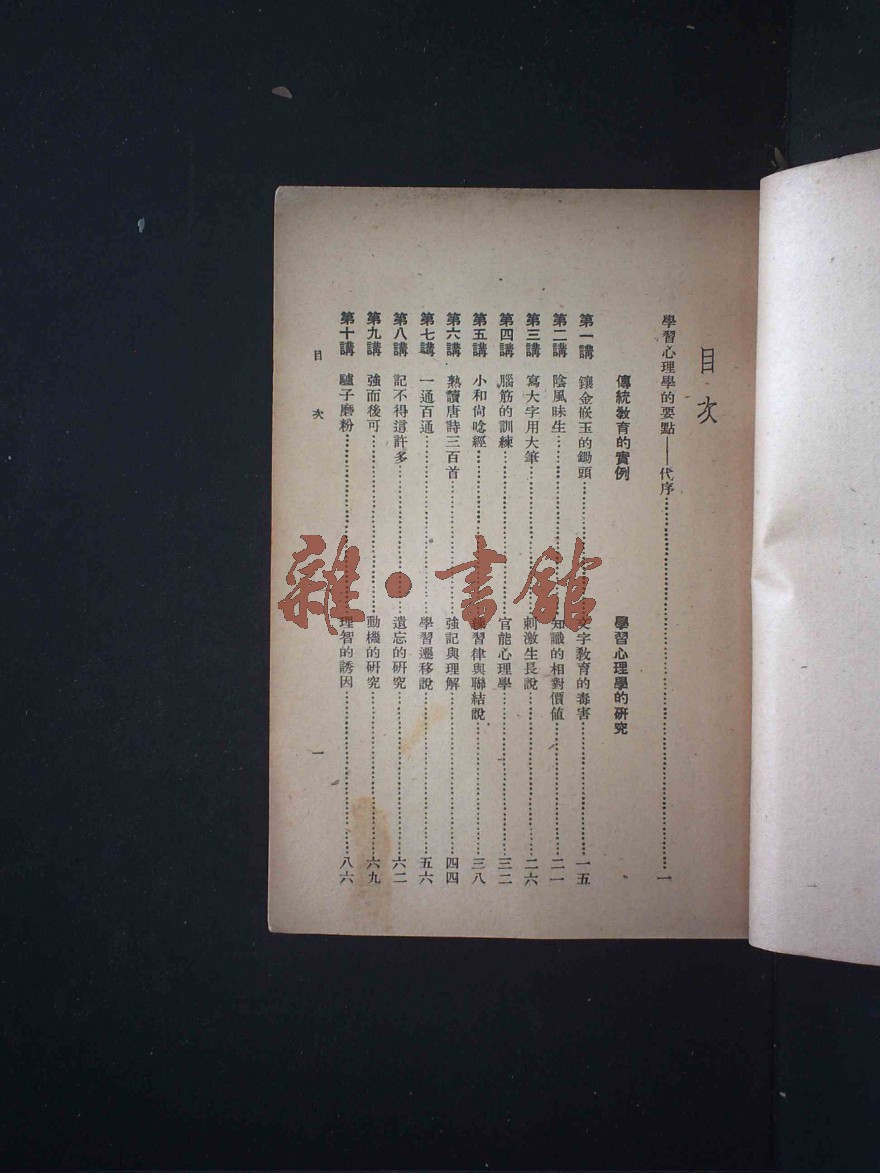 目次
學習心理學的要點——代序……一
傳統教育的實例 學習心理學的研究
第一講 鑲金嵌玉的鋤頭……文字教育的毒害……一五
第二講 陰風昧生……知識的相對價值……二一
第三講 寫大字用大筆……刺激生長說……二六
第四講 腦筋的訓練……官能心理學……三二
第五講 小和尙唸經……練習律與聯結說……三八
第六講 熟讀唐詩三百首……強記與理解……四四
第七講 一通百通……學習遷移說……五六
第八講 記不得這許多……遺忘的研究……六二
第九講 強而後可……動機的研究……六九
第十講 驢子磨粉……理智的誘因……八六
目次 一
雜·書館